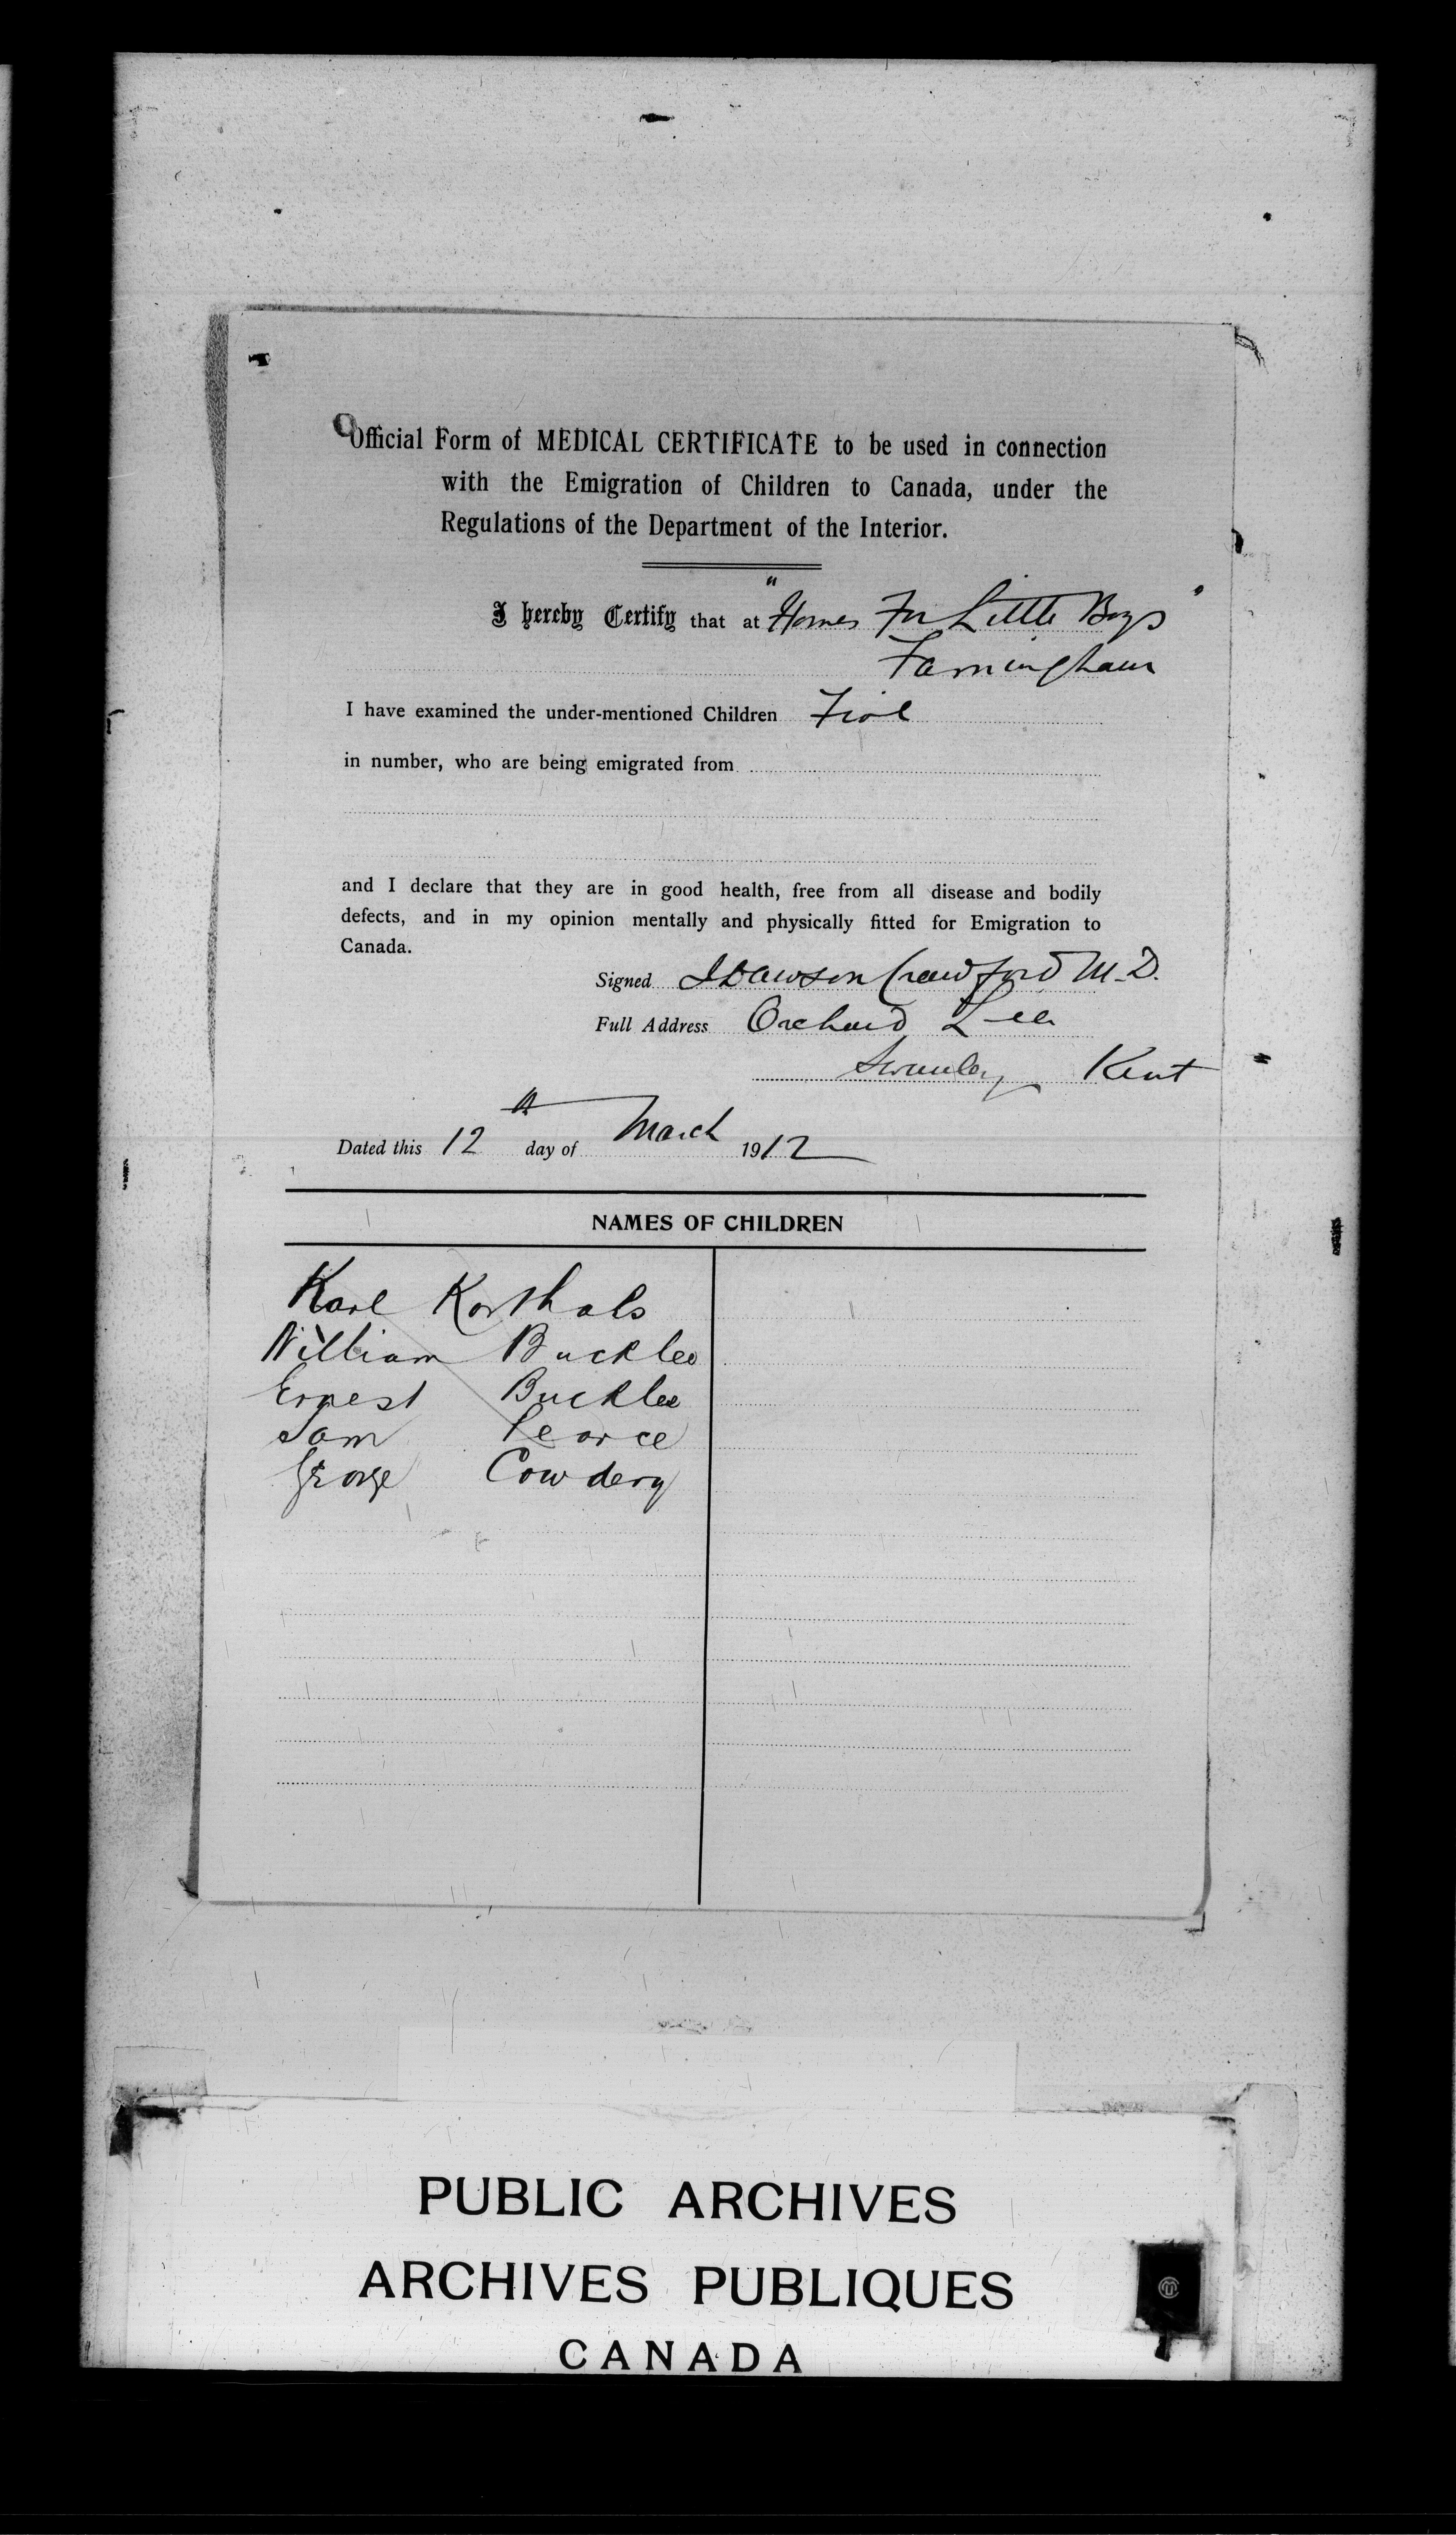 Official Form of MEDICAL CERTIFICATE to be used in connection
with the Emigration of Children to Canada, under the
Regulations of the Department of the Interior.
I hereby Certify that at "Homes For Little Boys"
Farningham
I have examined the under-mentioned Children Five
in number, who are being emigrated from
and I declare that they are in good health, free from all disease and bodily
defects, and in my opinion mentally and physically fitted for Emigration to
Canada.
Signed J Dawson Crawford M.D.
Full Address Orchard Lea
Swanley Kent
Dated this 12th day of March 1912
NAMES OF CHILDREN
Karl Korthals
William Bucklee
Ernest Bucklee
Sam Pearce
George Cowdery
PUBLIC ARCHIVES
ARCHIVES PUBLIQUES
CANADA